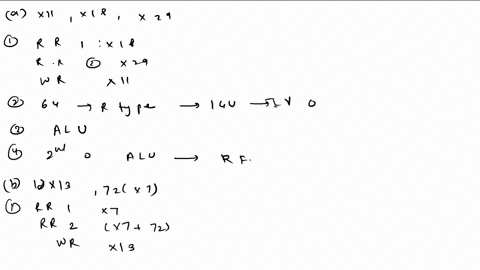 (a) x11 , x18 , x29
① R R 1 : x18
R . R ② x29
WR x11
② 64 → R type → IGU → IV 0
③ ALU
④ 2W 0 ALU → R F.
(b) ld x13 , 72(x7)
① RR 1 x7
RR 2 (x7 + 72)
WR x13